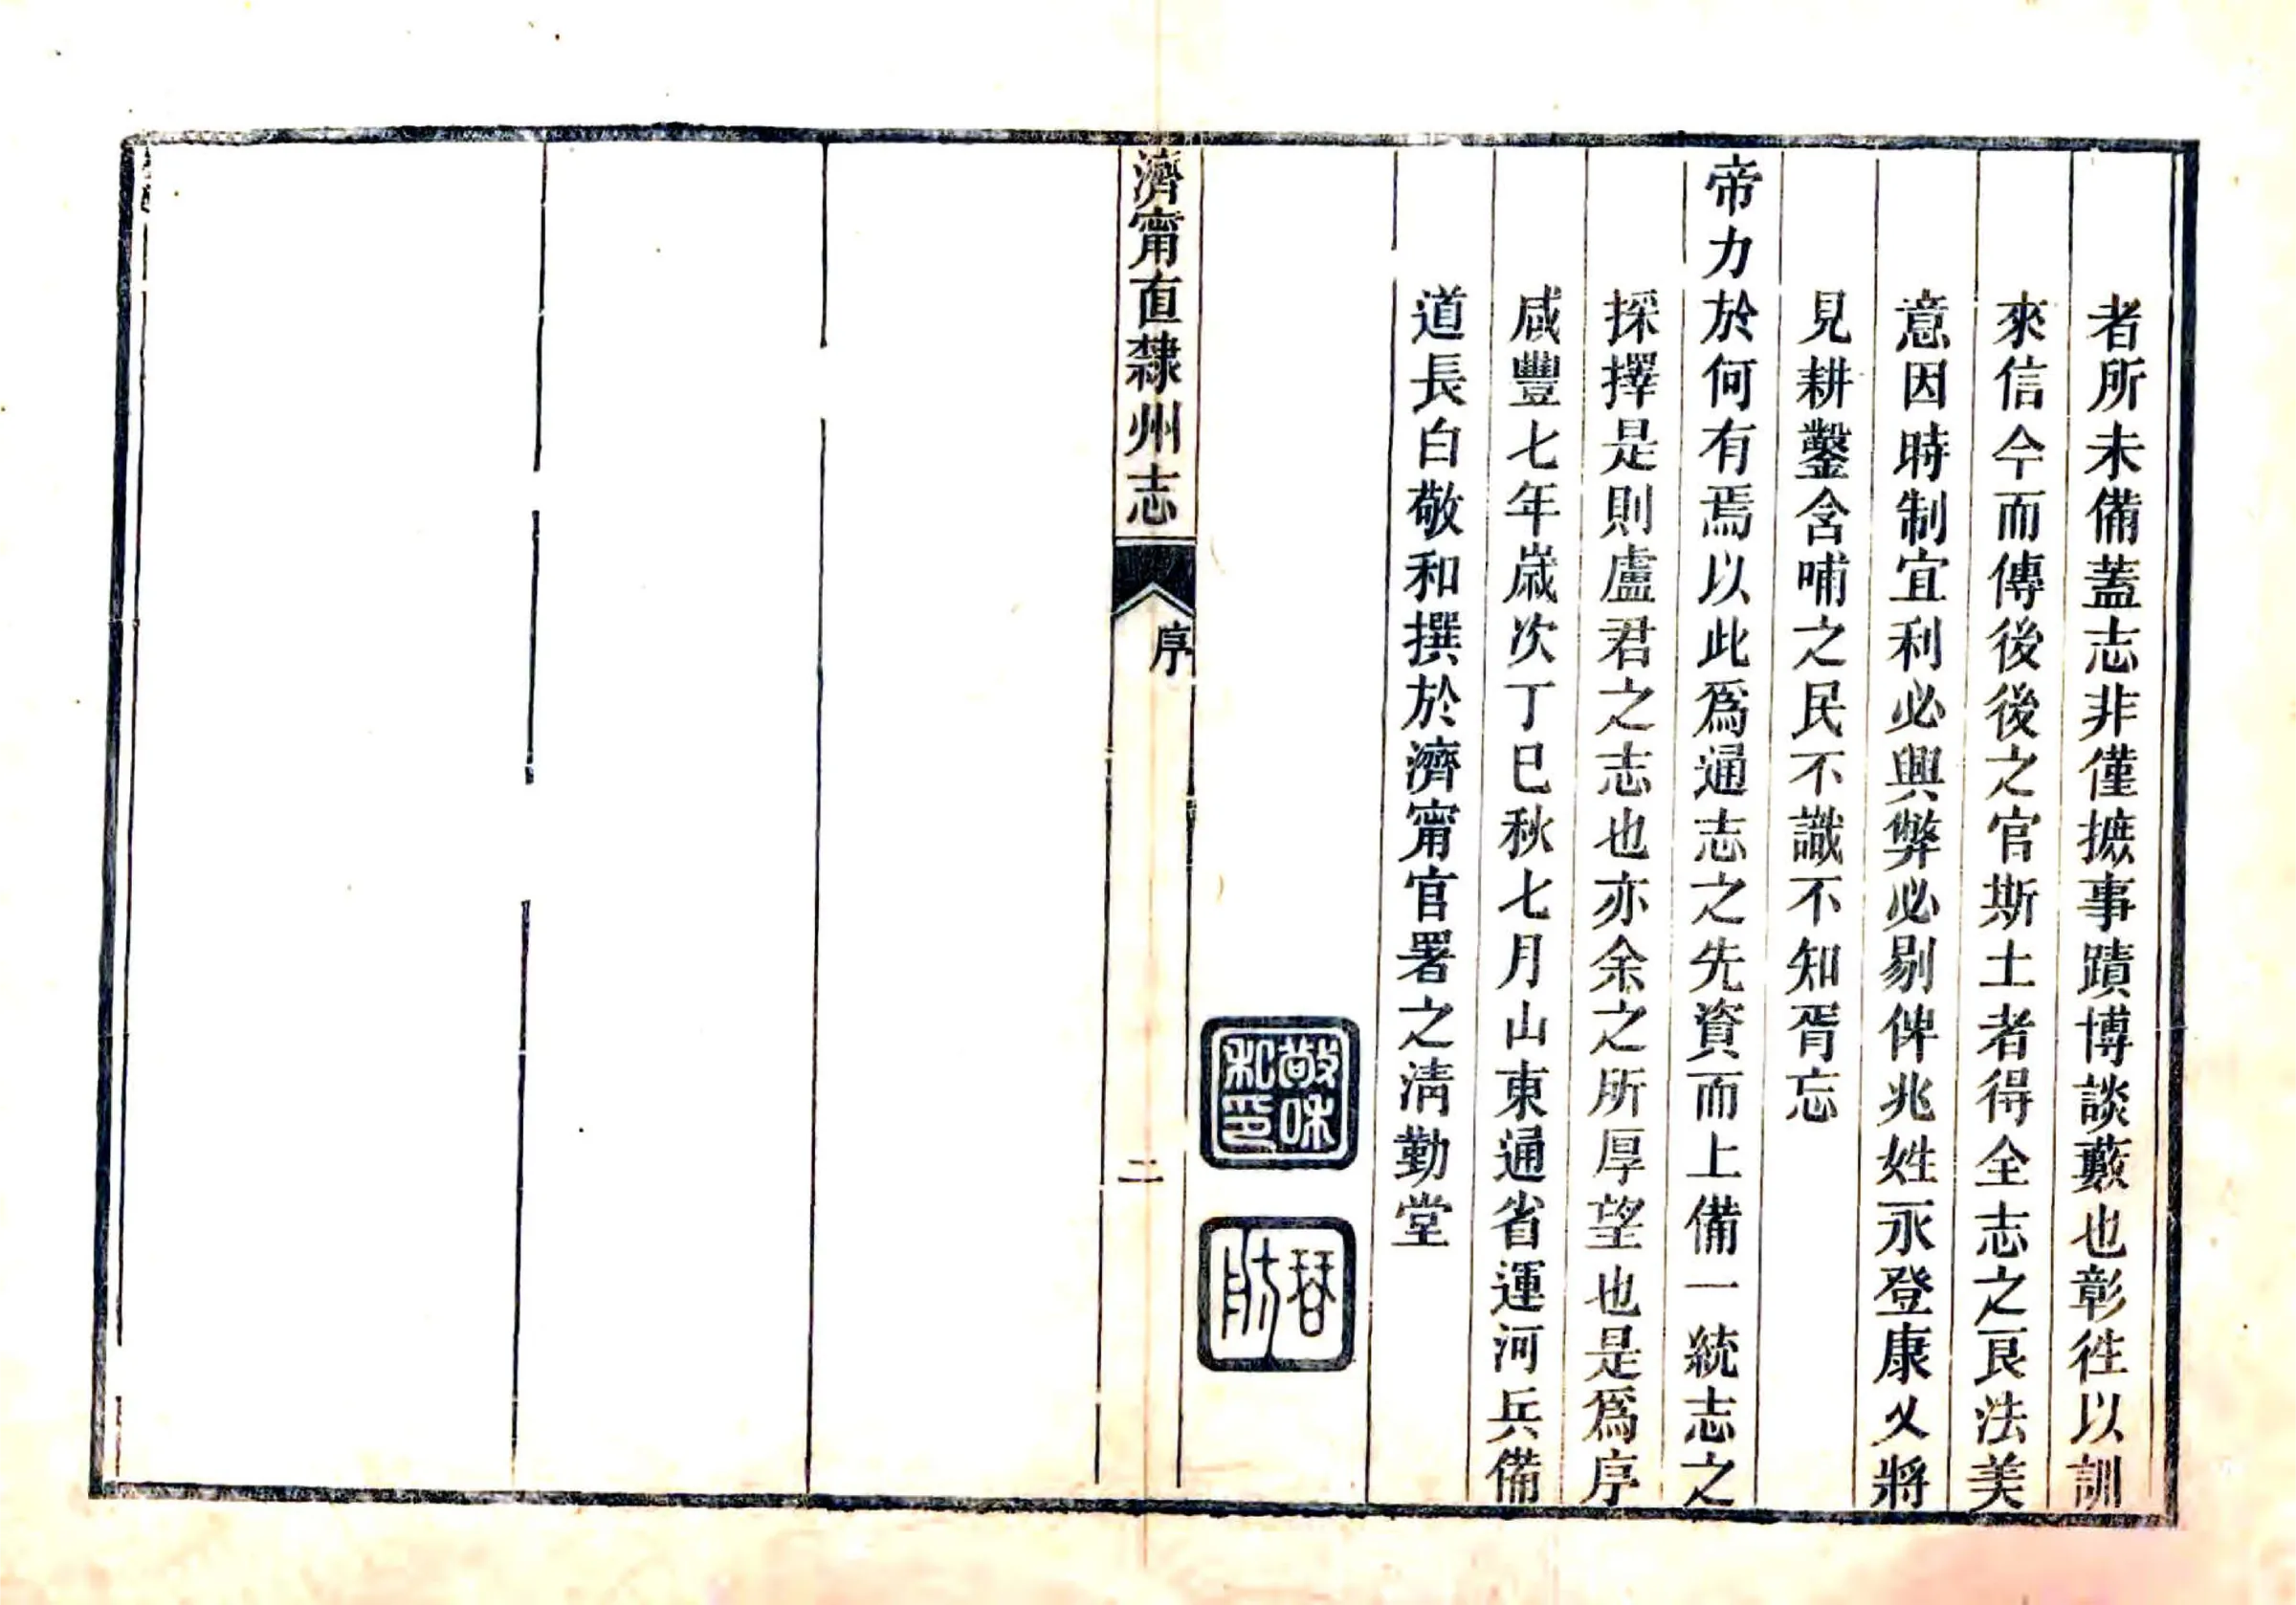 者所未備蓋志非僅摭事蹟博談藪也彰徃以訓
來信今而傳後後之官斯土者得全志之良法美
意因時制宜利必興弊必剔俾兆姓永登康乂將
見耕鑿含哺之民不識不知胥忘
帝力於何有焉以此爲通志之先資而上備一統志之
採擇是則盧君之志也亦余之所厚望也是爲序
咸豐七年歲次丁巳秋七月山東通省運河兵備
道長白敬和撰於濟甯官署之清勤堂
敬和印
濟甯直隸州志
序
二